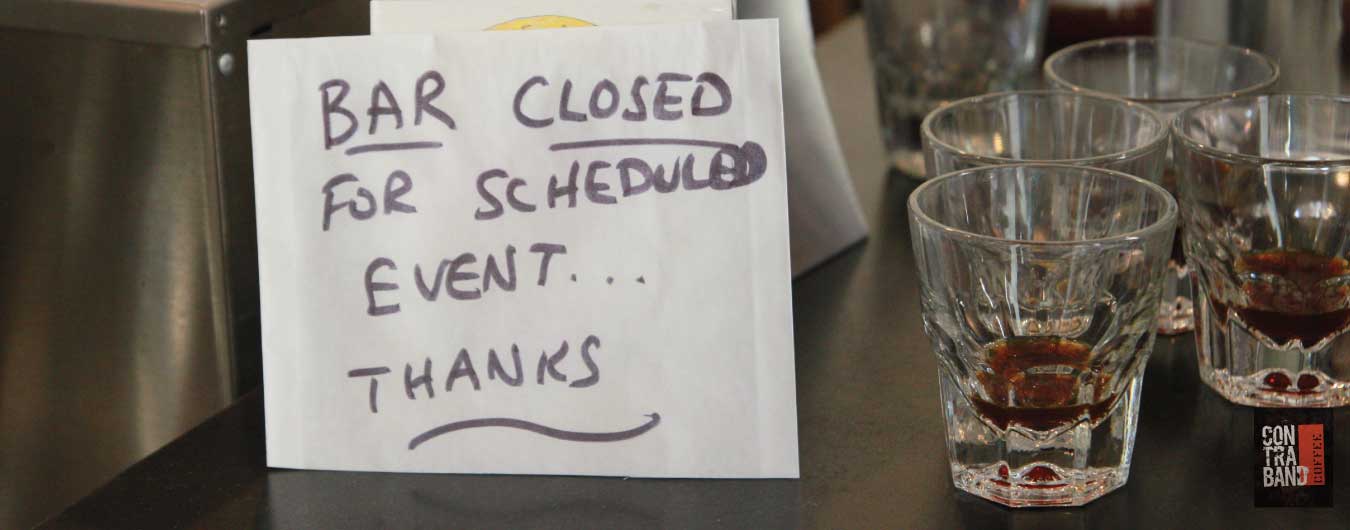 BAR CLOSED
FOR SCHEDULED
EVENT...
THANKS
CON
TRA
BAND
COFFEE